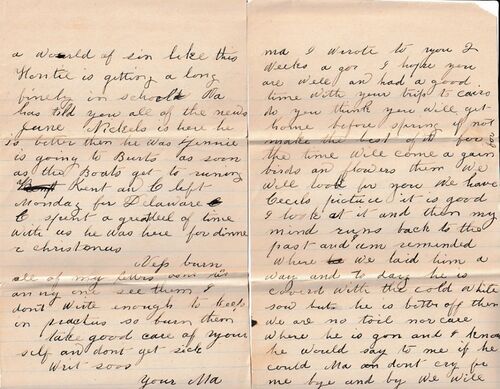 a world of sin like this
Hontie is getting a long
finely in school Ma
has told you all of the news
June Nickels is here he
is better then he was Jennie
is going to Burts as soon
as the Boats get to runing
Kent an C left
Monday for Delaware
C spent a great eel of time
with us he was here for dinner
christomas
burn
all of my
an ny one see them I
dont write enough to keep
in practus so burn them
take good care of your
self and dont get sick
Writ soos
Your Ma
ma I wrote to you 2
weeks a gor I hope you
are well and had a good
time with your trip to cairo
do you think you will get
home before spring if not
make the best of it for
the time will come a gain
birds and flowers them We
will look for you We have
Cecils picture it is good
I look at it and then my
mind runs back to the
past and am reminded
Where we laid him a
way and to day he is
coverd with the cold white
sow but he is bitter off then
we are no toil nor care
Where he is gon and I know
he would say to me if he
could Ma dont cry for
me bye and by We Will